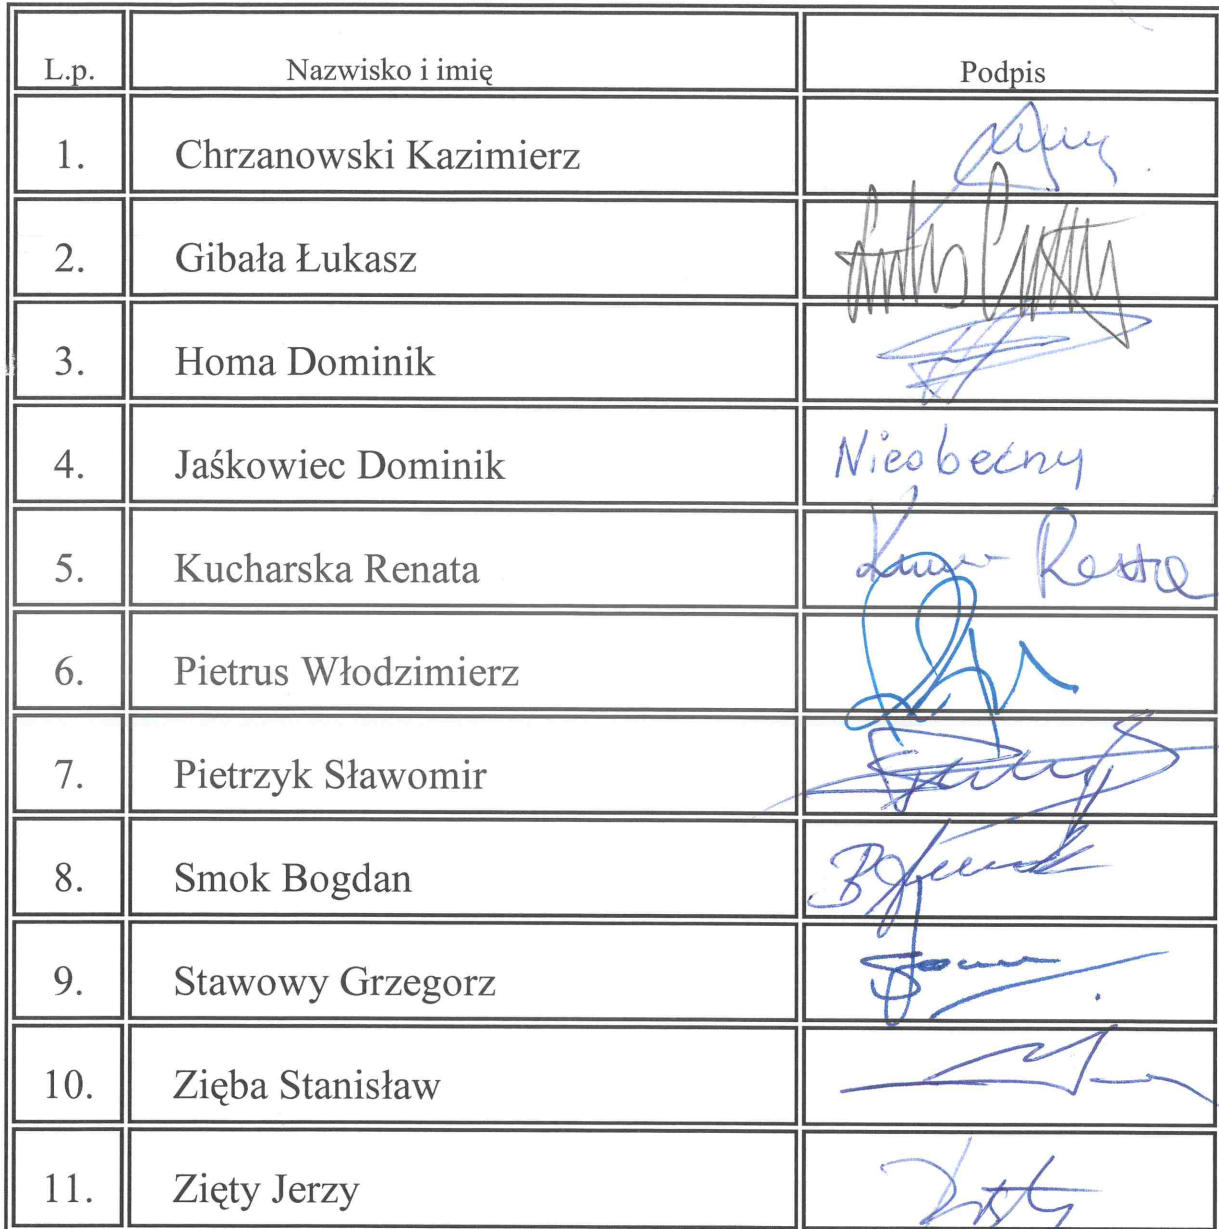 L.p. Nazwisko i imię Podpis
1. Chrzanowski Kazimierz
2. Gibała Łukasz
3. Homa Dominik
4. Jaśkowiec Dominik Nieobecny
5. Kucharska Renata
6. Pietrus Włodzimierz
7. Pietrzyk Sławomir
8. Smok Bogdan
9. Stawowy Grzegorz
10. Zięba Stanisław
11. Zięty Jerzy